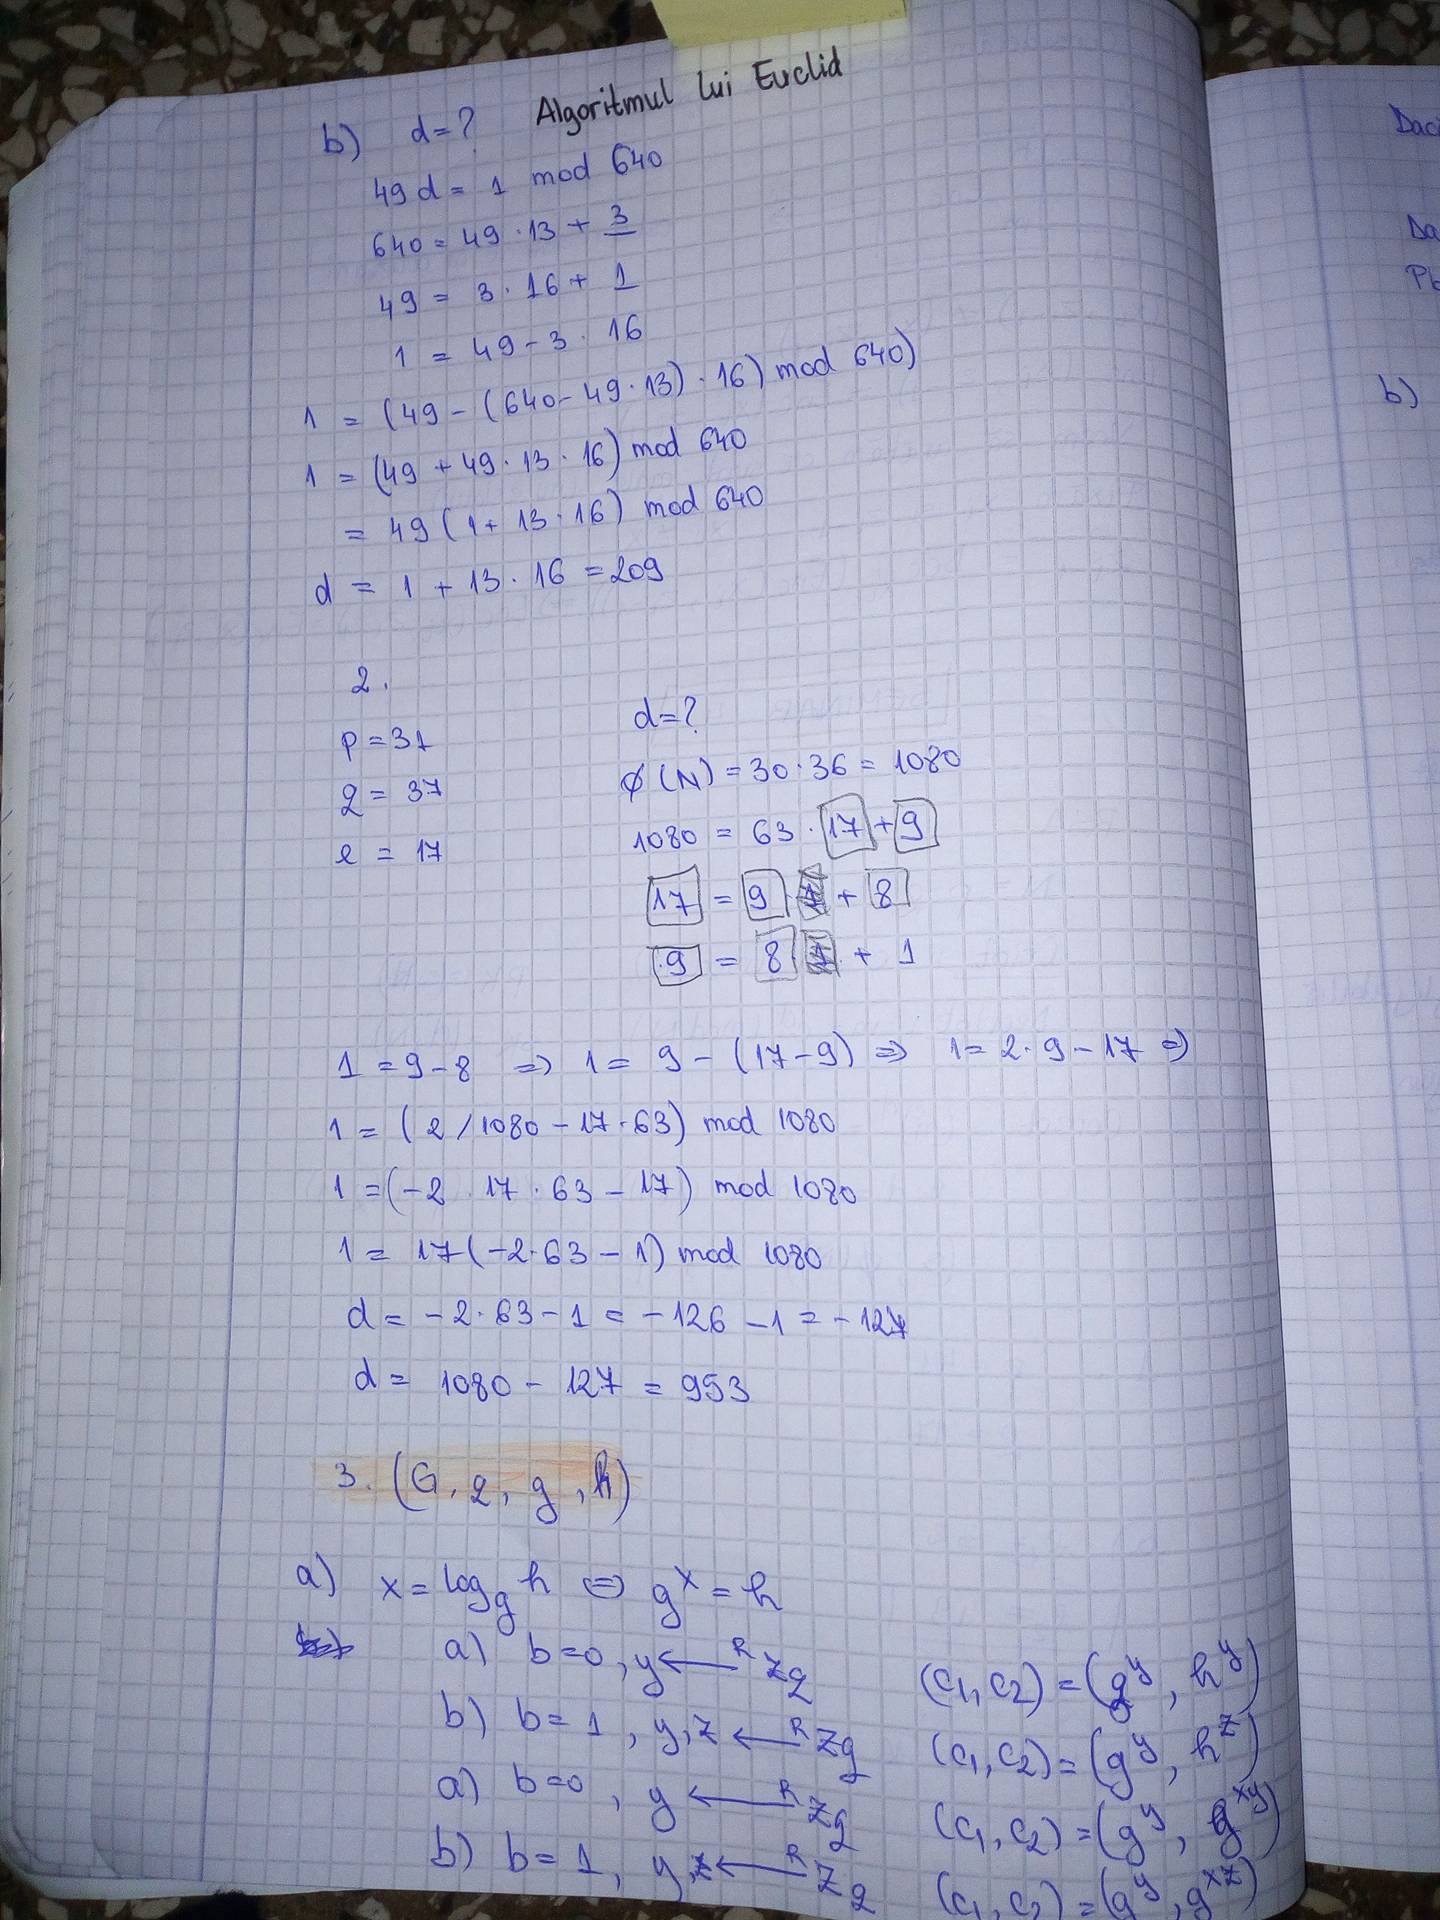 b) d=? Algoritmul lui Euclid
49 d = 1 mod 640
640 = 49 · 13 + 3
49 = 3 · 16 + 1
1 = 49 - 3 · 16
1 = (49 - (640 - 49 · 13) · 16) mod 640)
1 = (49 + 49 · 13 · 16) mod 640
= 49 (1 + 13 · 16) mod 640
d = 1 + 13 · 16 = 209
2.
p = 31
q = 37
e = 17
d=?
ϕ(N) = 30 · 36 = 1080
1080 = 63 · 17 + 9
17 = 9 · 1 + 8
9 = 8 · 1 + 1
1 = 9 - 8 => 1 = 9 - (17 - 9) => 1 = 2 · 9 - 17 =>
1 = (2 / 1080 - 17 · 63) mod 1080
1 = (-2 · 17 · 63 - 17) mod 1080
1 = 17 (-2 · 63 - 1) mod 1080
d = -2 · 63 - 1 = -126 - 1 = -127
d = 1080 - 127 = 953
3. (G, q, g, h)
a) x = log_g h <=> g^x = h
a) b=0, y ←^R Z_q (c_1, c_2) = (g^y, h^y)
b) b = 1, y, z ←^R Z_q (c_1, c_2) = (g^y, h^z)
a) b=0, y ←^R Z_q (c_1, c_2) = (g^y, g^xy)
b) b = 1, y, z ←^R Z_q (c_1, c_2) = (g^y, g^xz)
Daci
Da
b)